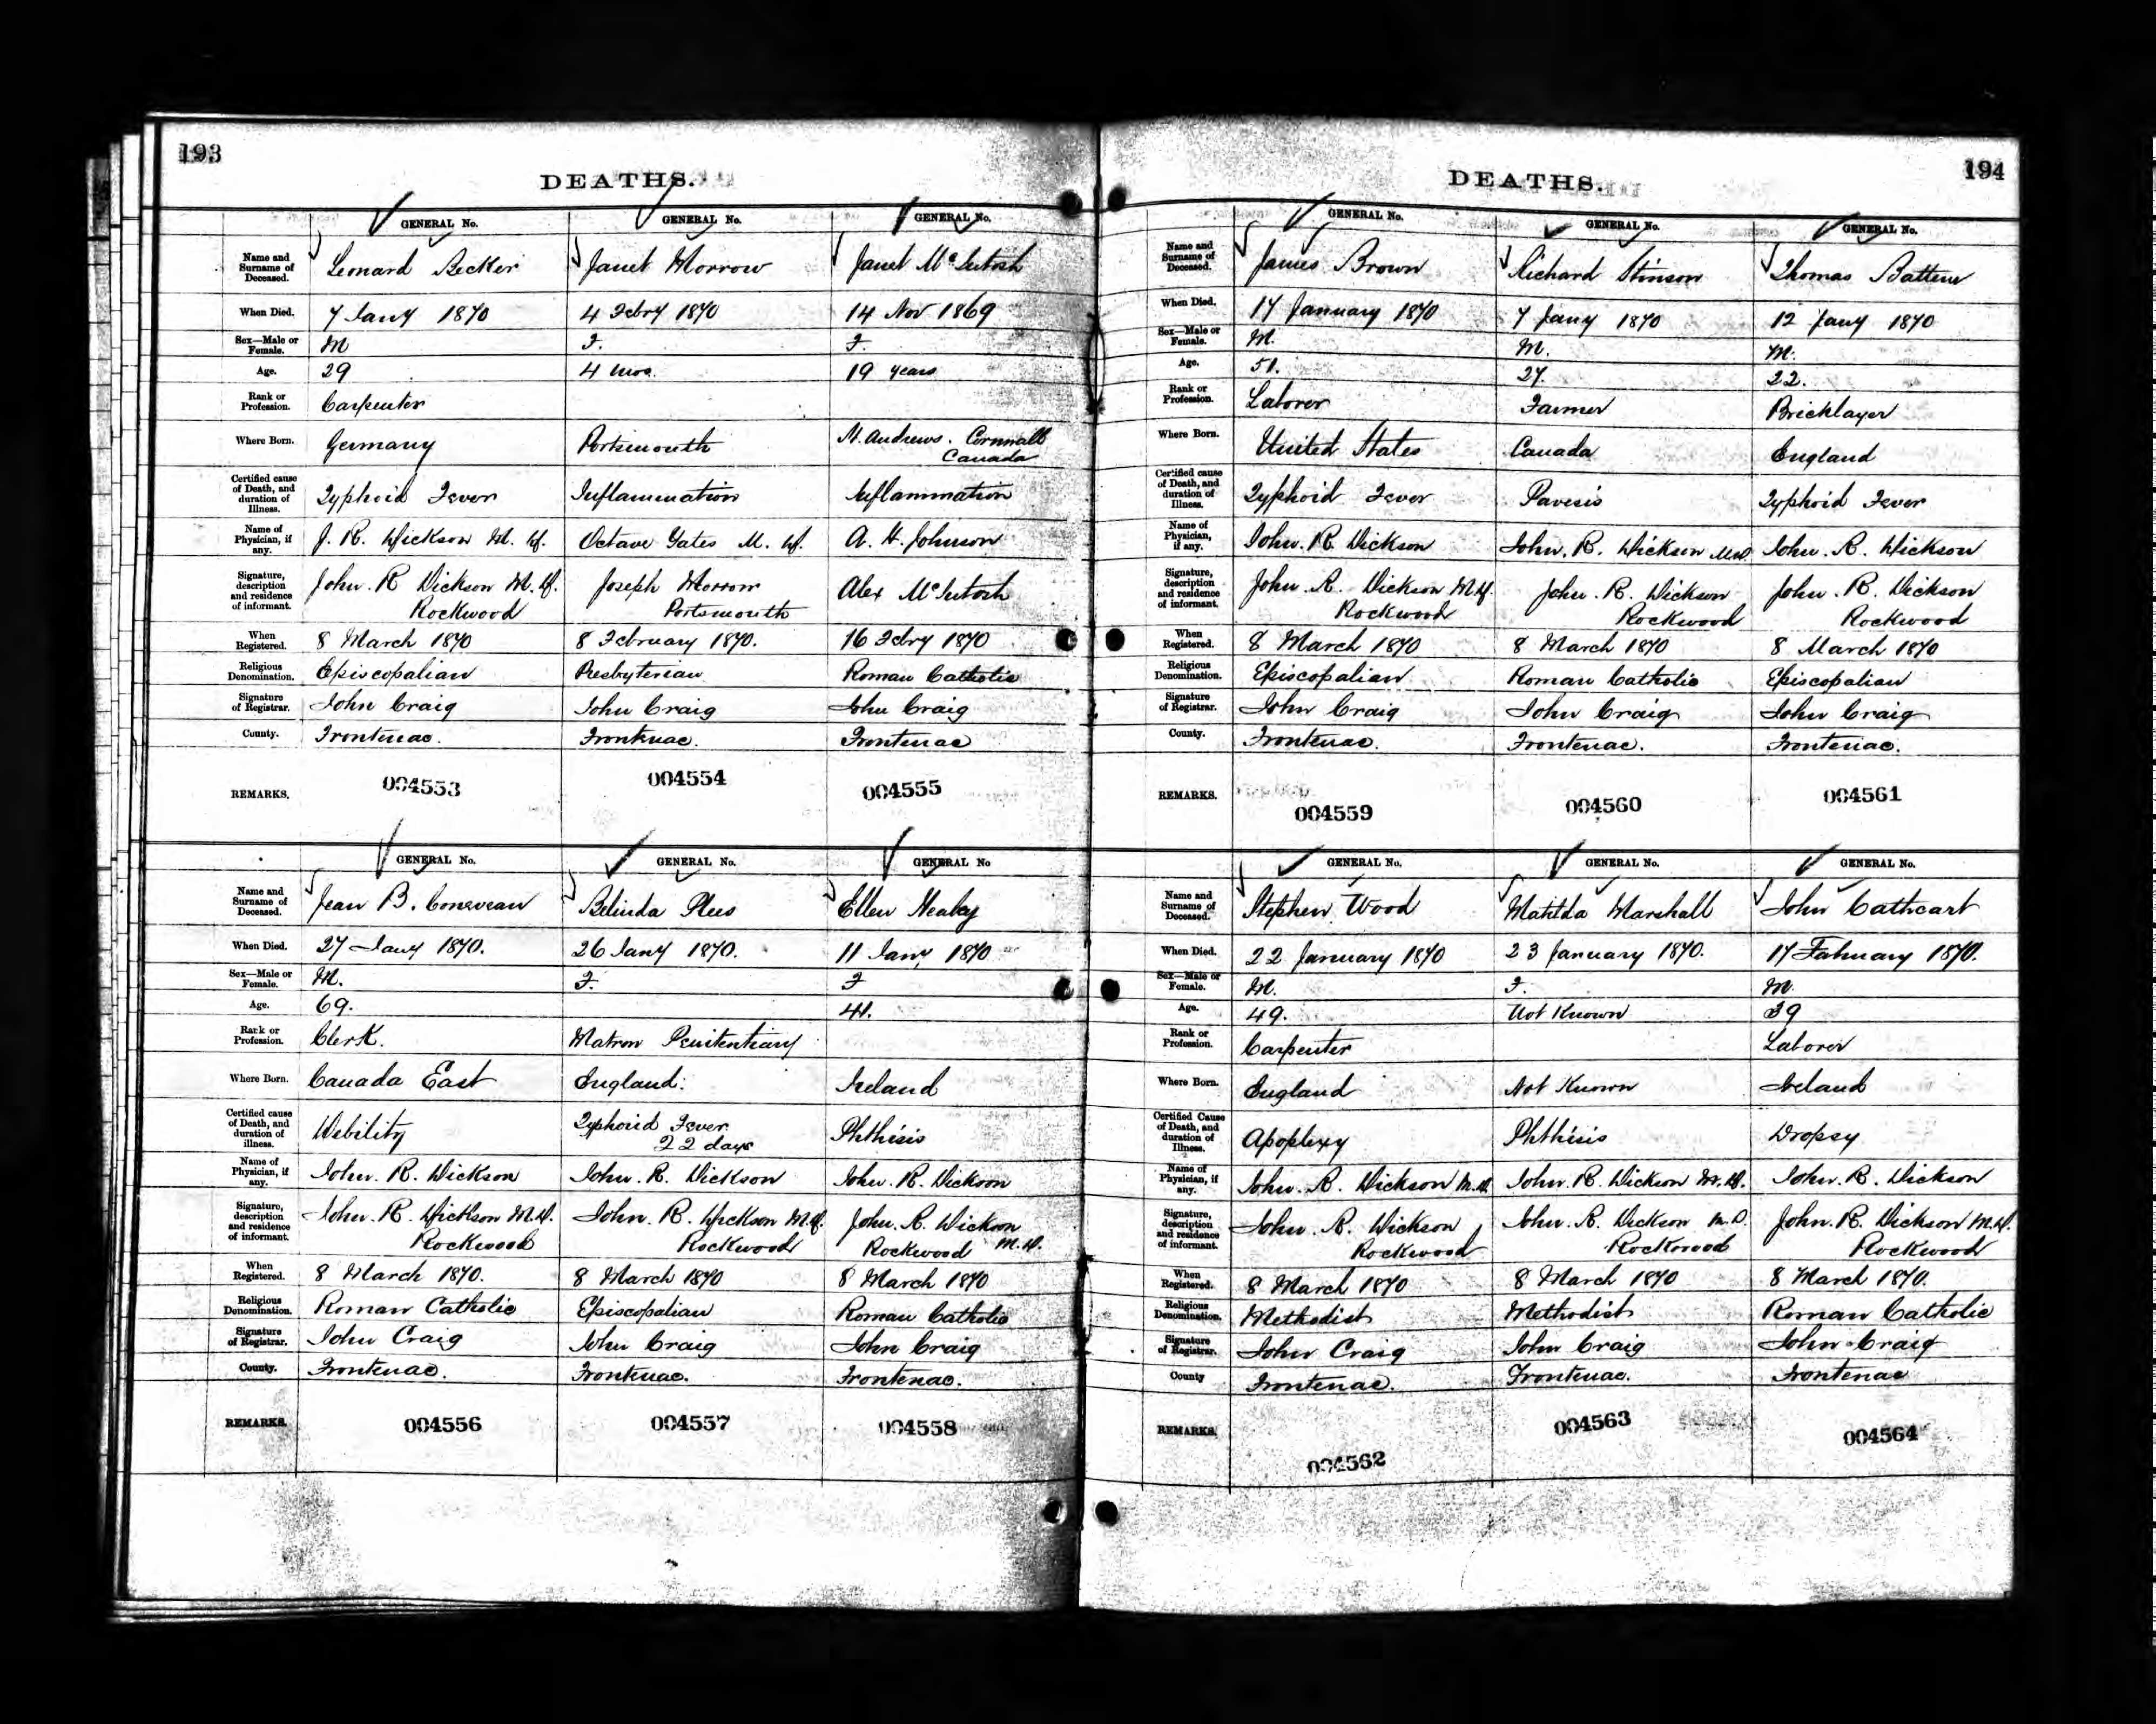 193
DEATHS.
GENERAL No. GENERAL No. GENERAL No.
Name and Surname of Deceased. Leonard Becker Janet Morrow Janet McIntosh
When Died. 7 Jany 1870 4 Febry 1870 14 Nov 1869
Sex—Male or Female. M F. F.
Age. 29 4 mos. 19 years
Rank or Profession. Carpenter
Where Born. Germany Portsmouth St. Andrews. Cornwall Canada
Certified cause of Death, and duration of Illness. Typhoid Fever Inflammation Inflammation
Name of Physician, if any. J. R. Dickson M. D. Octave Yates M. D. A. H. Johnson
Signature, description and residence of informant. John. R Dickson M. D. Rockwood Joseph Morrow Portsmouth Alex McIntosh
When Registered. 8 March 1870 8 February 1870. 16 Febry 1870
Religious Denomination. Episcopalian Presbyterian Roman Catholic
Signature of Registrar. John Craig John Craig John Craig
County. Frontenac. Frontenac. Frontenac
REMARKS. 004553 004554 004555
GENERAL No. GENERAL No. GENERAL No
Name and Surname of Deceased. Jean B. Belinda Plees Ellen Healey
When Died. 27 Jany 1870. 26 Jany 1870. 11 Jany 1870
Sex—Male or Female. M. F. F
Age. 69. 41.
Rank or Profession. Clerk. Matron Penitentiary
Where Born. Canada East England. Ireland
Certified cause of Death, and duration of illness. Debility Typhoid Fever. 22 days Phthisis
Name of Physician, if any. John. R. Dickson John. R. Dickson John. R. Dickson
Signature, description and residence of informant. John. R. Dickson M.D. Rockwood John. R. Dickson M.D. Rockwood John. R. Dickson Rockwood M.D.
When Registered. 8 March 1870. 8 March 1870 8 March 1870
Religious Denomination. Roman Catholic Episcopalian Roman Catholic
Signature of Registrar. John Craig John Craig John Craig
County. Frontenac. Frontenac. Frontenac.
REMARKS. 004556 004557 004558
194
DEATHS.
GENERAL No. GENERAL No. GENERAL No.
Name and Surname of Deceased. James Brown Richard Stinson Thomas Batten
When Died. 17 January 1870 7 Jany 1870 12 Jany 1870
Sex—Male or Female. M. M. M.
Age. 51. 27. 22.
Rank or Profession. Laborer Farmer Bricklayer
Where Born. United States Canada England
Certified cause of Death, and duration of Illness. Typhoid Fever Paresis Typhoid Fever
Name of Physician, if any. John. R. Dickson John. R. Dickson M.D. John. R. Dickson
Signature, description and residence of informant. John. R. Dickson M.D. Rockwood John. R. Dickson Rockwood John. R. Dickson Rockwood
When Registered. 8 March 1870 8 March 1870 8 March 1870
Religious Denomination. Episcopalian Roman Catholic Episcopalian
Signature of Registrar. John Craig John Craig John Craig
County. Frontenac. Frontenac. Frontenac.
REMARKS. 004559 004560 004561
GENERAL No. GENERAL No. GENERAL No.
Name and Surname of Deceased. Stephen Wood Matilda Marshall John Cathcart
When Died. 22 January 1870 23 January 1870. 17 Fabruary 1870.
Sex—Male or Female. M. F. M.
Age. 49. Not Known 39
Rank or Profession. Carpenter Laborer
Where Born. England Not Known Ireland
Certified Cause of Death, and duration of Illness. Apoplexy Phthisis Dropsy
Name of Physician, if any. John. R. Dickson M.D. John. R. Dickson M.D. John. R. Dickson
Signature, description and residence of informant. John. R. Dickson Rockwood John. R. Dickson M.D. Rockwood John. R. Dickson M.D. Rockwood
When Registered. 8 March 1870 8 March 1870 8 March 1870.
Religious Denomination. Methodist Methodist Roman Catholic
Signature of Registrar. John Craig John Craig John Craig
County Frontenac. Frontenac. Frontenac
REMARKS. 004562 004563 004564